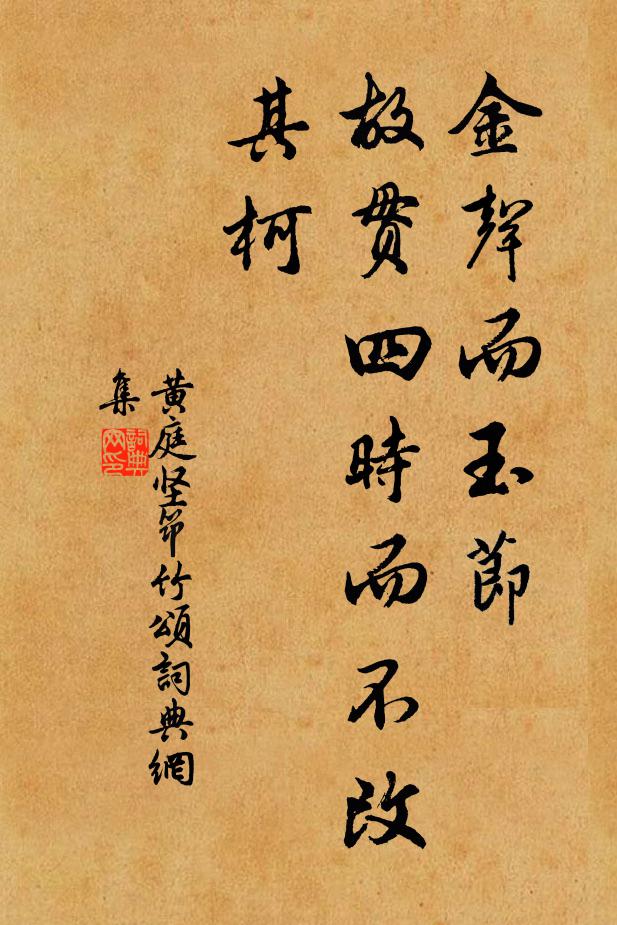 金聲而玉節
故贯四時而不改
其柯
黄庭坚笻竹頌詞典網
集
詞典
网印